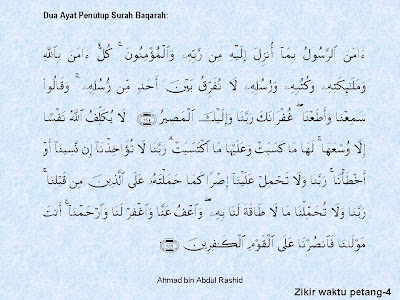 Dua Ayat Penutup Surah Baqarah:
ءَامَنَ ٱلرَّسُولُ بِمَآ أُنزِلَ إِلَيْهِ مِن رَّبِّهِۦ وَٱلْمُؤْمِنُونَ ۚ كُلٌّ ءَامَنَ بِٱللَّهِ
وَمَلَـٰٓئِكَتِهِۦ وَكُتُبِهِۦ وَرُسُلِهِۦ لَا نُفَرِّقُ بَيْنَ أَحَدٍ مِّن رُّسُلِهِۦ ۚ وَقَالُوا۟
سَمِعْنَا وَأَطَعْنَا ۖ غُفْرَانَكَ رَبَّنَا وَإِلَيْكَ ٱلْمَصِيرُ ﴿٢٨٥﴾ لَا يُكَلِّفُ ٱللَّهُ نَفْسًا
إِلَّا وُسْعَهَا ۚ لَهَا مَا كَسَبَتْ وَعَلَيْهَا مَا ٱكْتَسَبَتْ ۗ رَبَّنَا لَا تُؤَاخِذْنَآ إِن نَّسِينَآ أَوْ
أَخْطَأْنَا ۚ رَبَّنَا وَلَا تَحْمِلْ عَلَيْنَآ إِصْرًا كَمَا حَمَلْتَهُۥ عَلَى ٱلَّذِينَ مِن قَبْلِنَا ۚ
رَبَّنَا وَلَا تُحَمِّلْنَا مَا لَا طَاقَةَ لَنَا بِهِۦ ۖ وَٱعْفُ عَنَّا وَٱغْفِرْ لَنَا وَٱرْحَمْنَآ ۚ أَنتَ
مَوْلَىٰنَا فَٱنصُرْنَا عَلَى ٱلْقَوْمِ ٱلْكَـٰفِرِينَ ﴿٢٨٦﴾
Ahmad bin Abdul Rashid
Zikir waktu petang-4